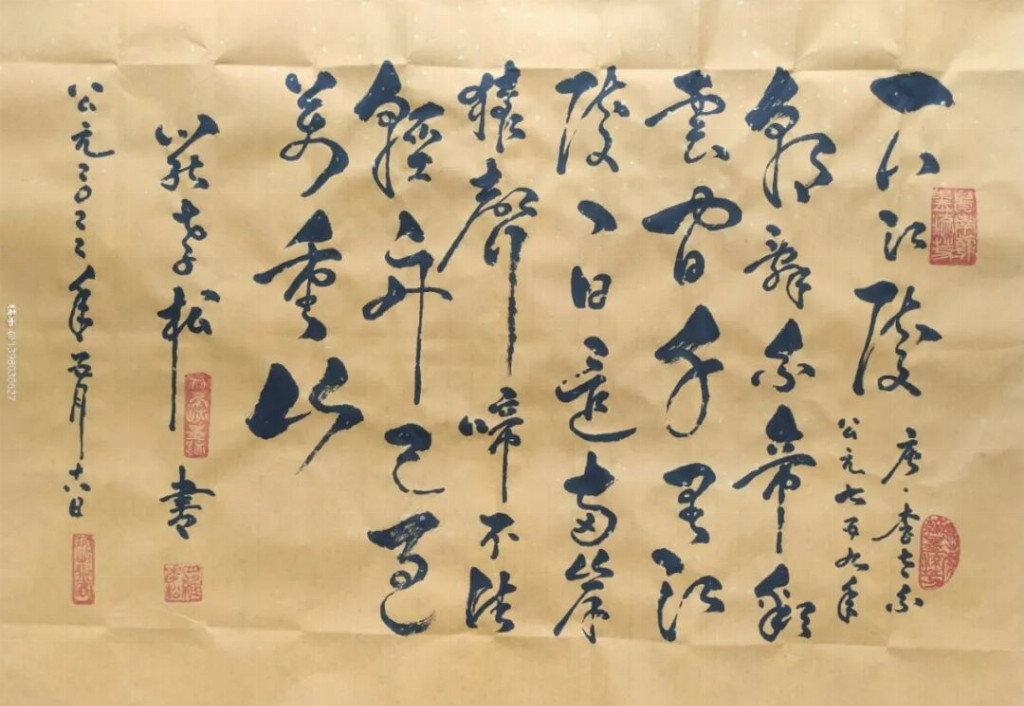 下江陵
唐·李太白
公元七五九年
朝辭白帝彩
雲間千里江
陵一日還兩岸
猿聲啼不住
輕舟已過
萬重山
松書
公元二〇二二年五月十六日